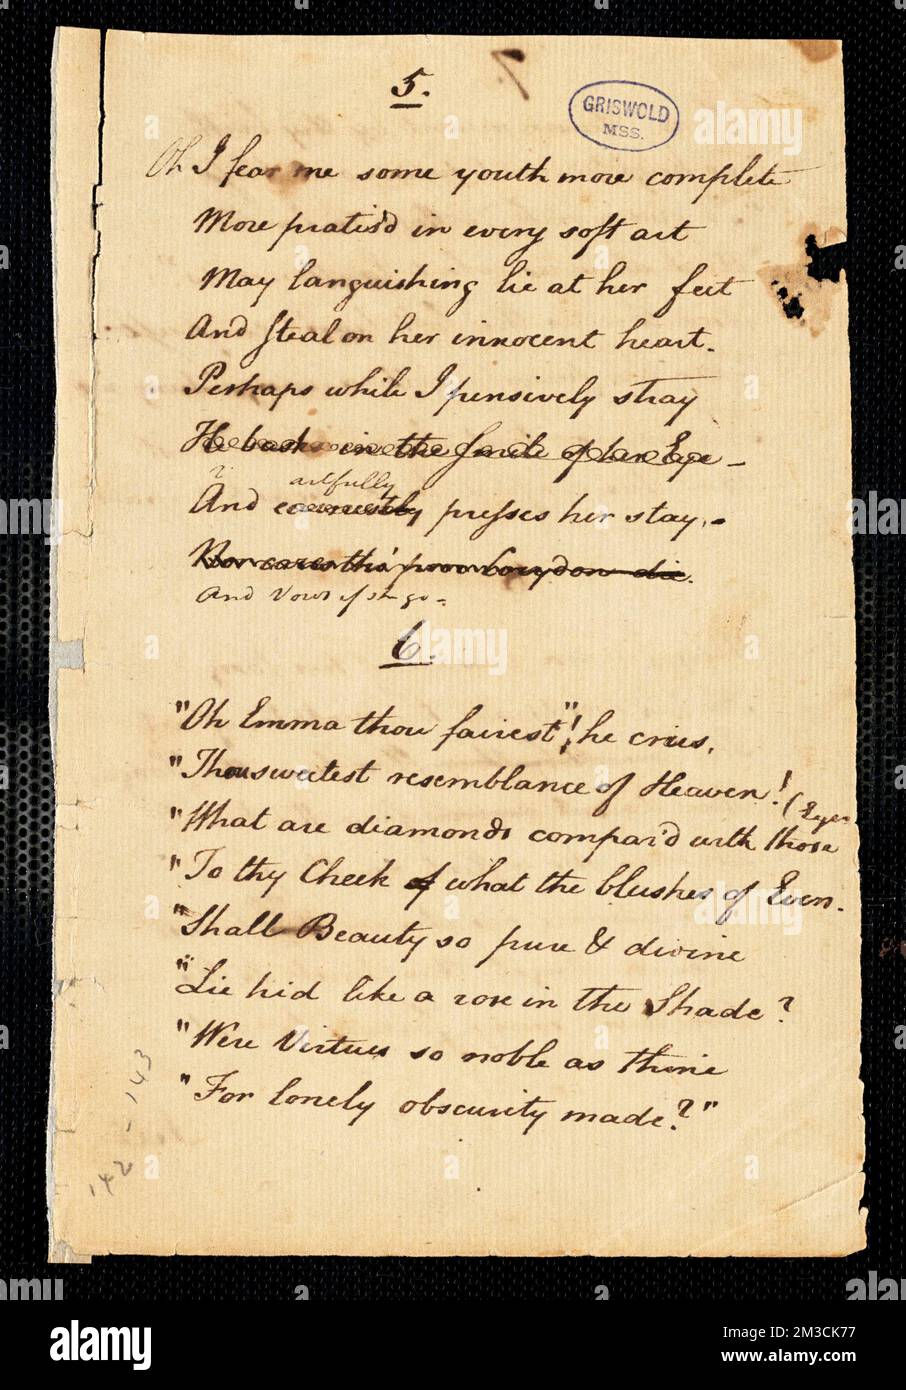 5.
GRISWOLD
MSS.
Oh I fear me some youth more complete
More pratis'd in every soft art
May languishing lie at her feet
And steal on her innocent heart.
Perhaps while I pensively stray
He basks in the smile of her Eye -
artfully
And earnestly presses her stay,-
Nor cares tho' poor Corydon die.
And Vows if she go -
6.
"Oh Emma thou fairest"! he cries,
"Thou sweetest resemblance of Heaven!
(Eyes
"What are diamonds compar'd with those
"To thy Cheek what the blushes of Even.
"Shall Beauty so pure & divine
"Lie hid like a rose in the Shade?
"Were Virtues so noble as thine
"For lonely obscurity made?"
142-143
alamy
Image ID: 2M3CK77
www.alamy.com